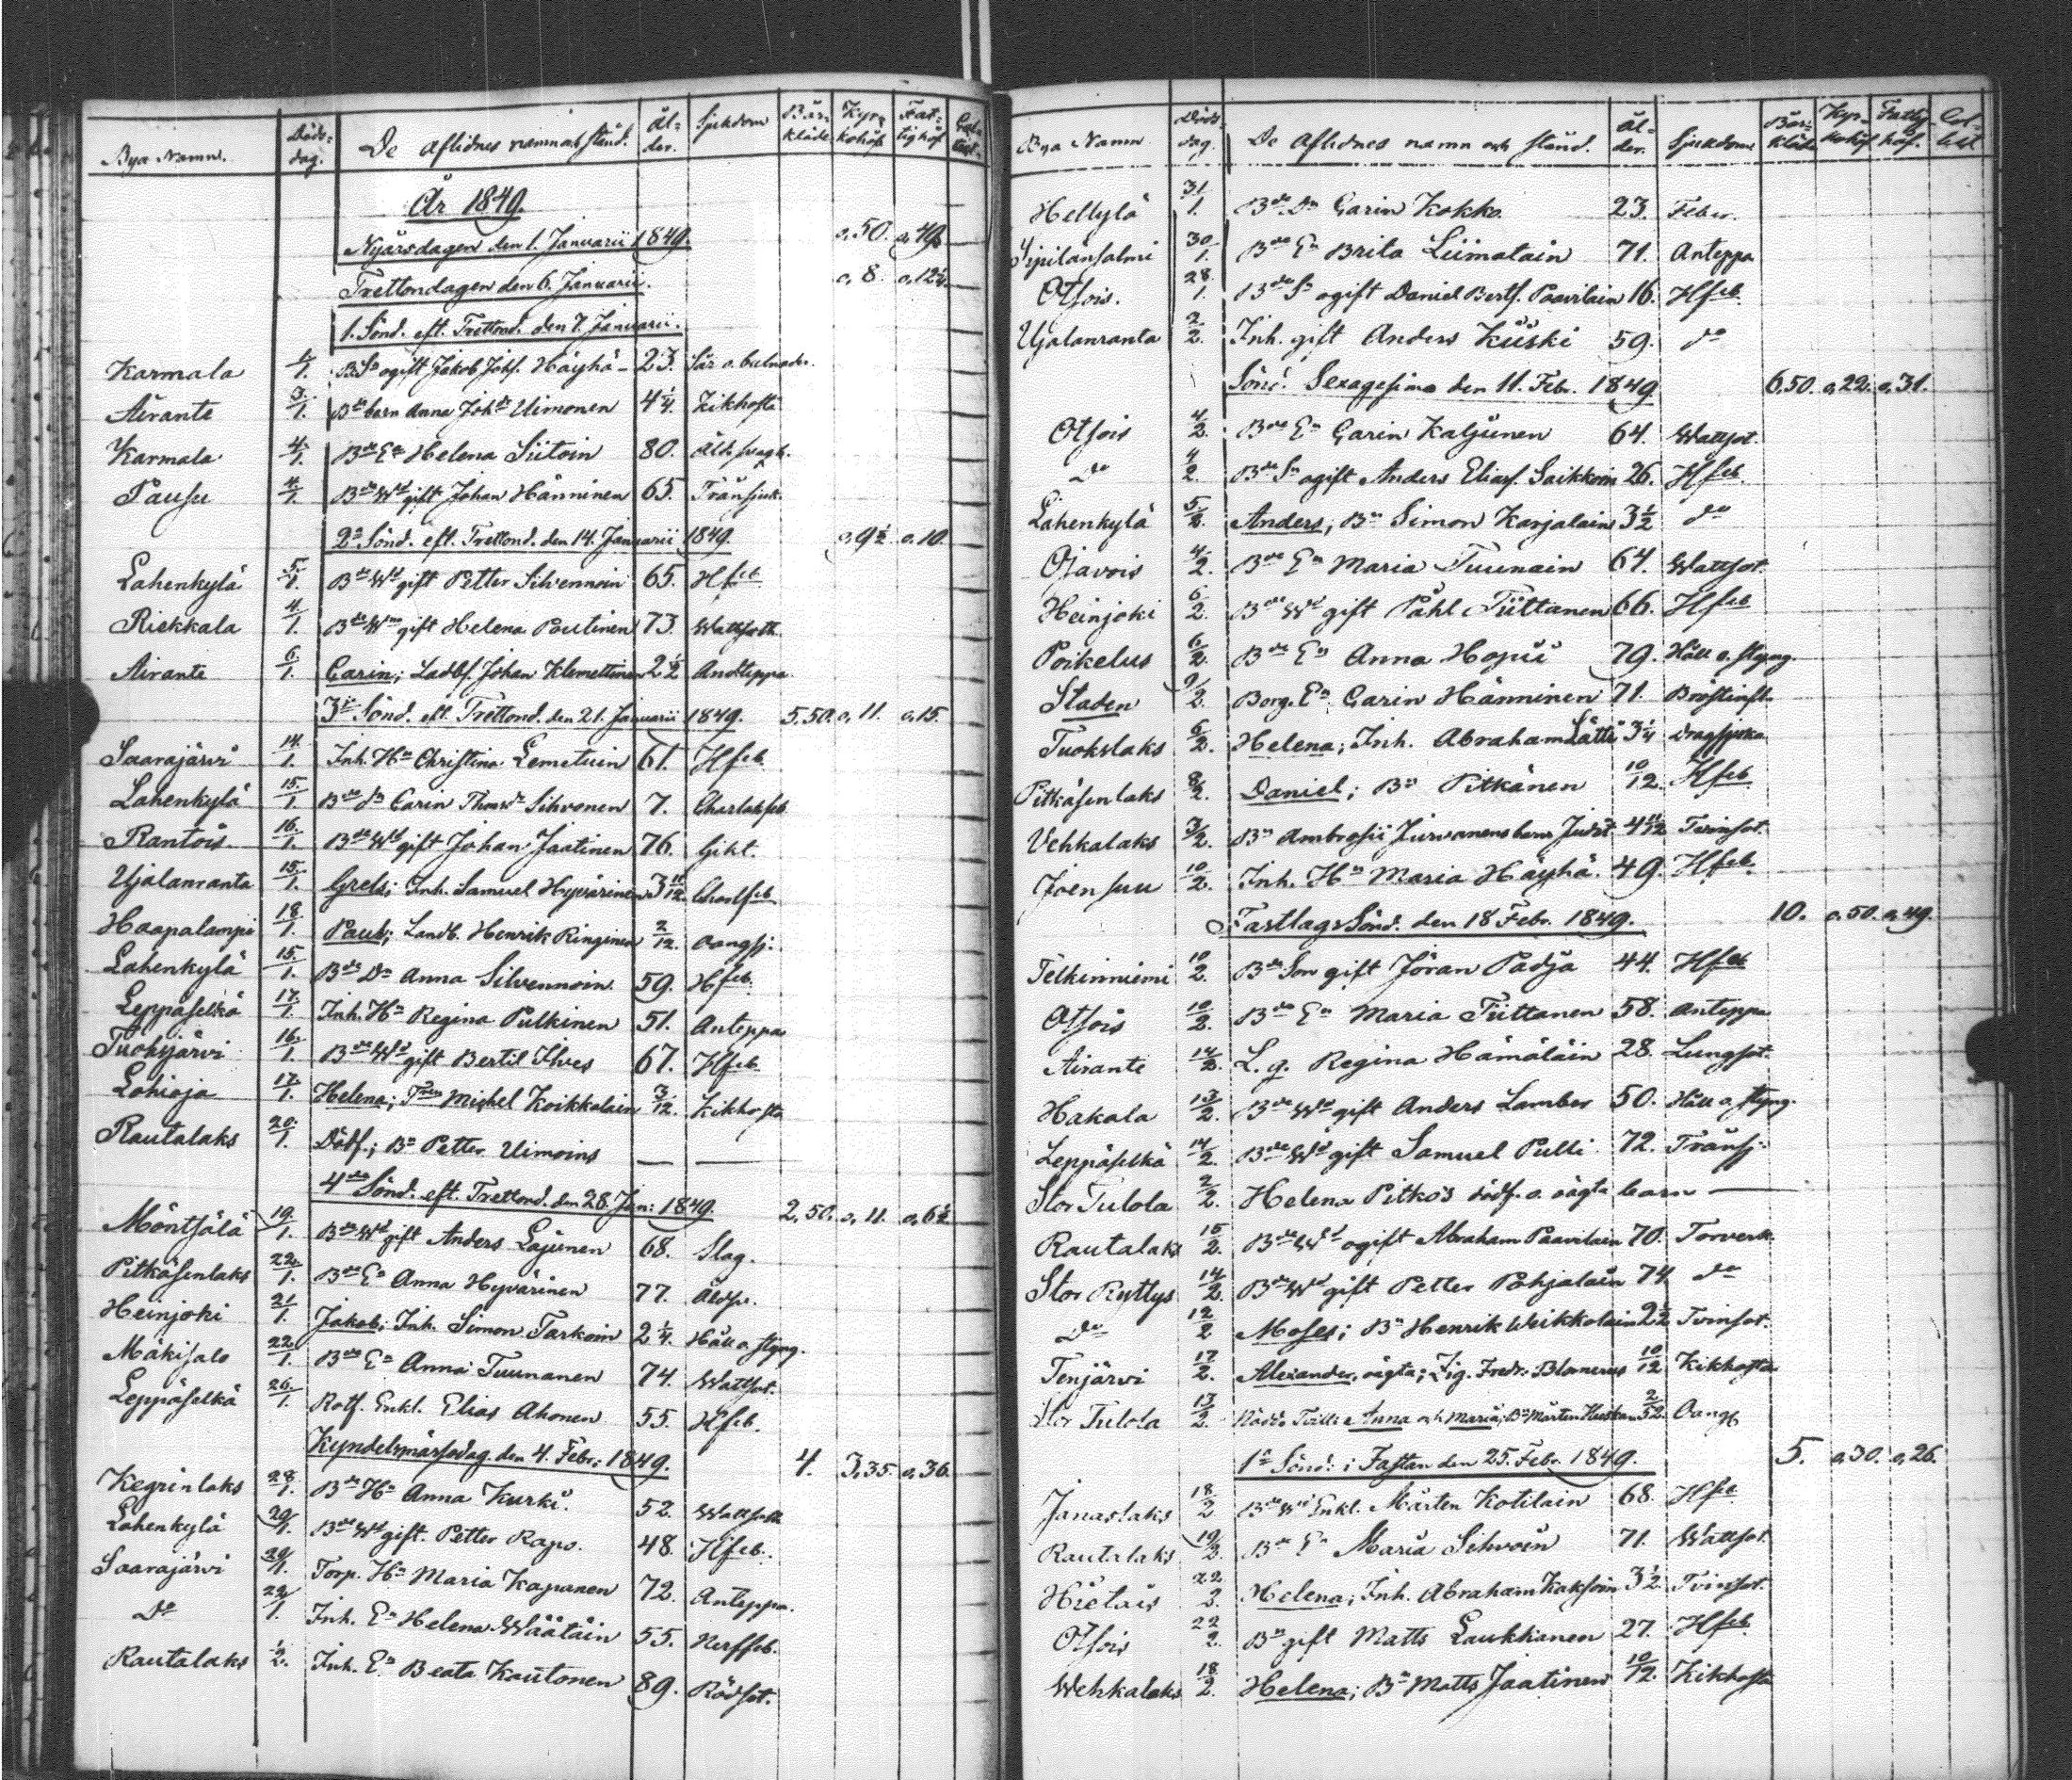 Bya Namn. Döds-dag. De aflidnes namn och stånd. Ål-der. Sjukdom Bår-kläde. Kyr-kohåf Fat-tighåf Col-lect.
År 1849.
Nyårsdagen den 1. Januarii 1849. 0,50. 0,49
Trettondagen den 6. Januarii. 0,8. 0,12½
1. Sönd. eft. Trettond. den 7. Januarii.
Karmala 1/1. B. Sn ogift Jakob Johs. Häyhä 23. Sår o.
Airante 3/1. Bde barn Anna Johdr Uimonen 4¼. Kikhosta
Karmala 4/1. Bde En Helena Siitoin 80. Åld.svagh.
Pausu 4/1. Bde Wd gift Johan Hänninen 65. Trånsjuk.
2a Sönd. eft. Trettond. den 14. Januarii 1849. 0,9½ 0,10.
Lahenkylä 5/1. Bde Wd gift Petter Silvennoin 65. Hfeb
Riekkala 4/1. Bde Wn gift Helena Poutinen 73. Wattsoth.
Airante 6/1. Carin; Ladbf. Johan Klemettinen 2½ Andteppa
3je Sönd. eft. Trettond. den 21. Januarii 1849. 5.50. 0,11. 0,15.
Saarajärvi 14/1. Inh. Hu Christina Lemetuin 61. Hfeb
Lahenkylä 15/1. Bde Dr Carin Thomdr Sihvonen 7. Charlakfeb
Rantois. 16/1. Bde Wd gift Johan Jaatinen 76. Gikt.
Ujalanranta 15/1. Greta; Inh. Samuel Hyvärinen 3 11/12 Charlfeb
Haapalampi 18/1. Paul; Landb. Henrik Ringinen 2/12. oangifv.
Lahenkylä 15/1. Bde Dr Anna Silvennoin 59. Hfeb.
Leppäselkä 17/1. Inh. Hu Regina Pulkinen 51. Anteppa
Tuokjärvi 16/1. Bde Wd gift Bertil Ilves 67. Hfeb
Lohioja 17/1. Helena; Michel Koikkalain 3/12. Kikhosta
Rautalaks 20/1. Dödf.; Bn Petter Uimoins — —
4de Sönd. eft. Trettond. den 28. Jan: 1849. 2,50. 0,11. 0,6½
Möntsälä 19/1. Bde Wd gift Anders Lajunen 68. Slag.
Pitkäsenlaks 22/1. Bde En Anna Hyvärinen 77. Åldsv.
Heinjoki 21/1. Jakob; Inh. Simon Tarkoin 2¼ Håll o. styng.
Mäkisalo 22/1. Bde En Anna Tuunanen 74. Wattsot.
Leppäselkä 26/1. Rotf. Enkl. Elias Ahonen 55. Hfeb.
Kyndelsmässodag. den 4. Febr: 1849. 4. 3,35. 0,36.
Kegrinlaks 28/1. Bde Hu Anna Kurki. 52. Wattsoth
Lahenkylä 29/1. Bde Wd gift. Petter Rapo. 48. Hfeb.
Saarajärvi 29/1. Torp. Hu Maria Kapanen 72. Anteppa.
Do 29/1. Inh. En Helena Wäätäin 55. Nerffeb.
Rautalaks 1/2. Inh. En Beata Kautonen 89. Rödsot.
Bya Namn Döds-dag. De Aflidnes namn och stånd. Ål-der. Sjukdom Bår-kläde Kyr-kohåf Fattig-håf. Col-lect
Hellylä 31/1. Bde Dr Carin Kokko. 23. Feber.
Sipilänsalmi 30/1. Bde En Brita Liimatain 71. Anteppa
Otsois. 28/1. Bde Sn ogift Daniel Bertf. Paavilain 16. Hfeb
Ujalanranta 2/2. Inh. gift Anders Küski 59. do
Sönd. Sexagesima den 11. Febr. 1849. 6.50. 0,22. 0,31.
Otsois 4/2. Bde En Carin Kaljunen 64. Wattsot.
do 4/2. Bde Sn ogift Anders Eliasf. Saikkoin 26. Hfeb.
Lahenkylä 5/2. Anders; Bn Simon Karjalain 3½ do
Ojavois 4/2. Bde En Maria Tuunain 64. Wattsot.
Heinjoki 6/2. Bde Wd gift Påhl Tiittanen 66. Hfeb
Poikelus 6/2. Bde En Anna Hopii 79. Håll o. styng.
Staden 9/2. Borg. En Carin Hänninen 71. Bröstinfl.
Tuokslaks 6/2. Helena; Inh. Abraham Lätti 3¼ dragsjuka
Pitkäsenlaks 8/2. Daniel; Bn Pitkänen 10/12. Hfeb
Vehkalaks 3/2. Bn Ambrosii Jurvanens barn Judit 4 11/12 Tvinsot.
Joensuu 10/2. Inh. Hu Maria Häyhä. 49. Hfeb.
Fastlags Sönd. den 18 Febr. 1849. 10. 0.50. 0,49.
Telkinniemi 10/2. Bde Son gift Jöran Padja 44. Hfeb
Otsois 10/2. Bde En Maria Tiittanen 58. Anteppa
Airante 14/2. L. q. Regina Hämäläin 28. Lungsot.
Hakala 13/2. Bde Wd gift Anders Lamber 50. Håll o. styng.
Leppäselkä 14/2. Bde Wd gift Samuel Pulli 72. Trånsj.
Stor Tulola 2/2. Helena Pitko's dödf. o. oägta barn —
Rautalaks 15/2. Bde Wd ogift Abraham Paavilain 70. Torverk.
Stor Ryttys 14/2. Bde Wd gift Petter Pohjalain 74 do
Do 12/2 Moses; Bn Henrik Weikkolain 2½ Tvinsot.
Tenjärvi 17/2. Alexander, oägta; Fredr. Blomerus 10/12 Kikhosta
Stor Tulola 13/2. Nöddt. Tvill: Anna och Maria; Bn Mårten 2/52. Oangf.
1a Sönd: i Fastan den 25. Febr. 1849. 5. 0,30. 0,26.
Janaslaks 18/2 Bde Wd Enkl. Mårten Kotilain 68. Hfeb
Rautalaks 19/2. Bde En Maria Sihvoin 71. Wattsot.
Hietais 22/2. Helena; Inh. Abraham Kaksoin 3½ Tvinsot.
Otsois 22/2. Bn gift Matts Laukkanen 27. Hfeb.
Wehkalaks 18/2. Helena; Bn Matts Jaatinen 10/12. Kikhosta